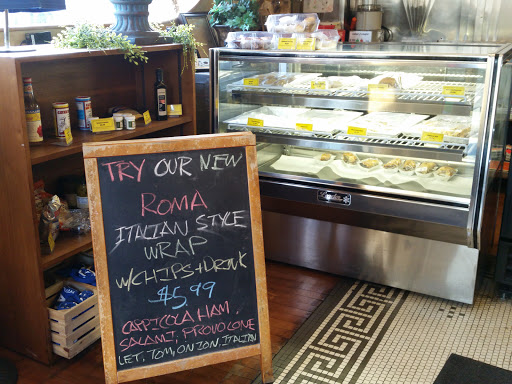 TRY OUR NEW
ROMA
ITALIAN STYLE
WRAP
W/CHIPS+DRINK
$5.99
CAPPICOLA HAM,
SALAMI, PROVOLONE
LET, TOM, ONION, ITALIAN